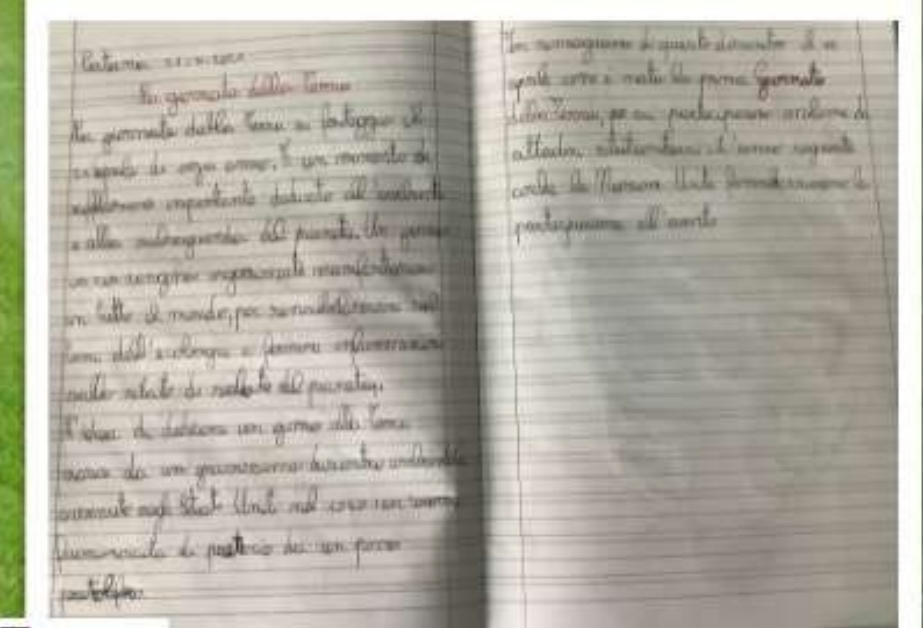 Catania
La giornata della Terra
La giornata della Terra si festeggia il
22 aprile di ogni anno. È un momento di
riflessione importante dedicato all'ambiente
e alla salvaguardia del pianeta. Un giorno
in cui vengono organizzate manifestazioni
in tutto il mondo, per sensibilizzare sui
temi dell'ecologia e fornire informazioni
sullo stato di salute del pianeta.
L'idea di dedicare un giorno alla Terra
nasce da un gravissimo disastro ambientale
avvenuto negli Stati Uniti nel
di petrolio da un pozzo
In di questo disastro il 22
aprile è nata la prima Giornata
della Terra, per cui parteciparono milioni di
cittadini statunitensi. L'anno seguente
anche le Nazioni Unite la
partecipazione all'evento